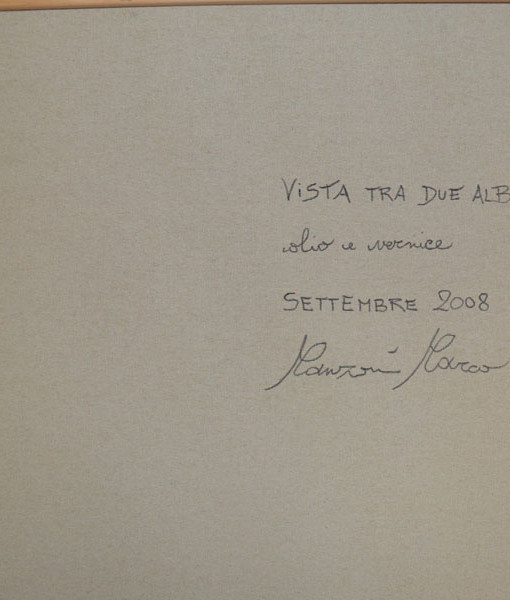 VISTA TRA DUE ALB
olio e vernice
SETTEMBRE 2008
Manzoni Marco